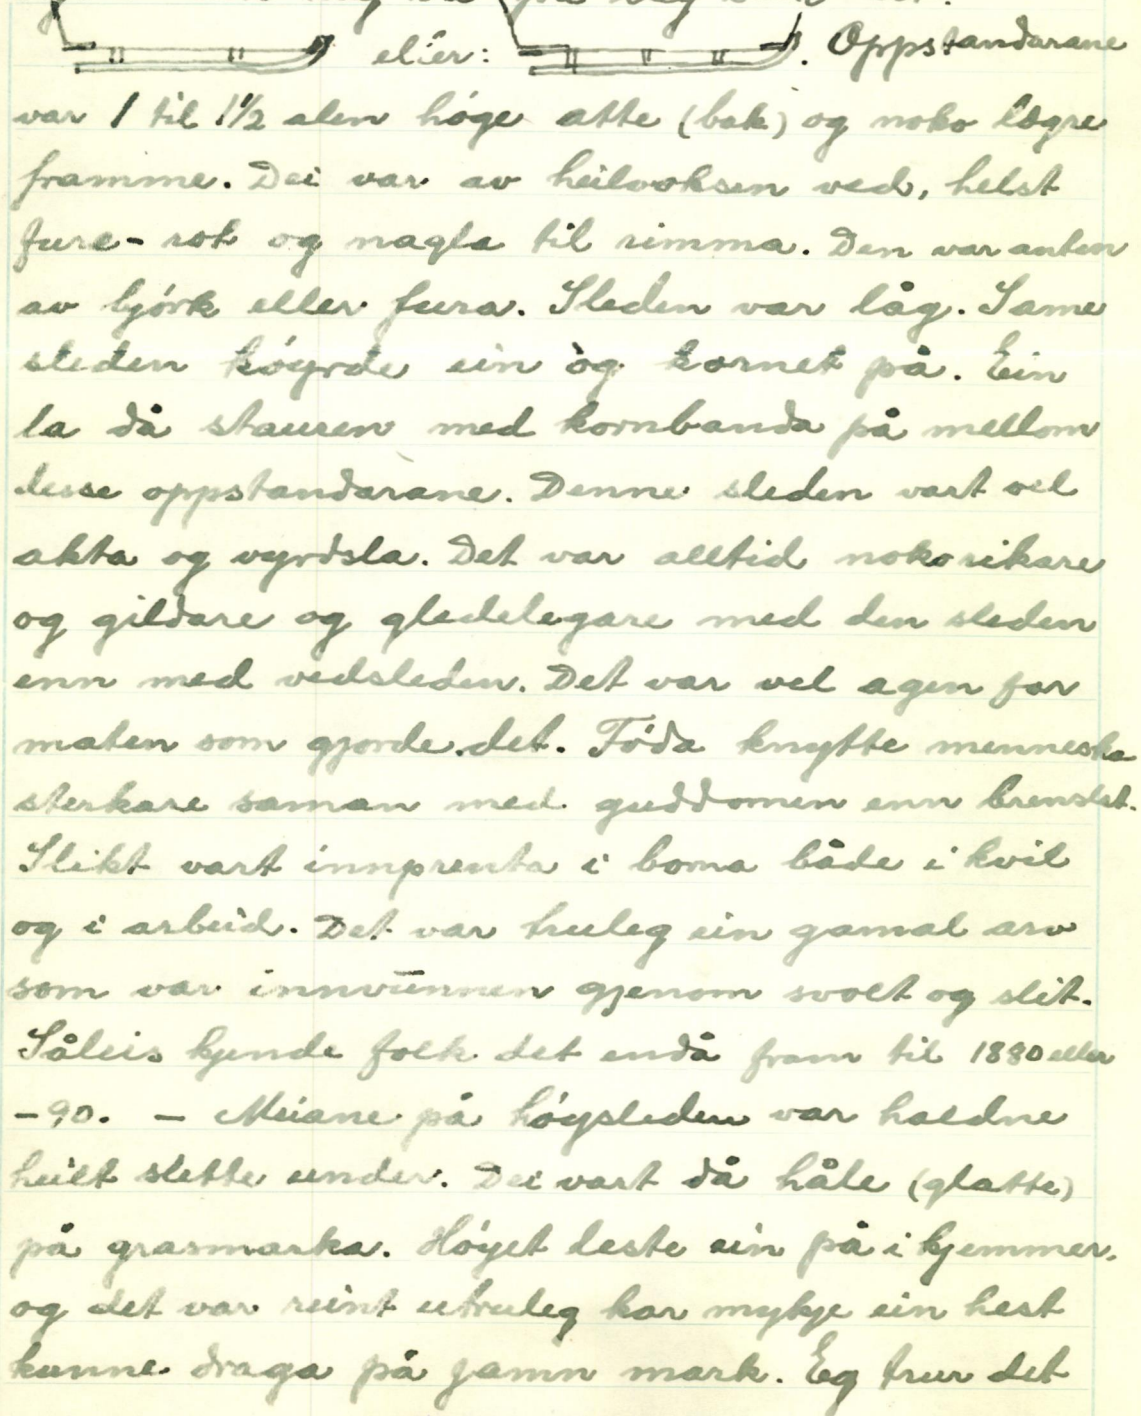 eller: . Oppstandarane
var 1 til 1½ alen høge atte (bak) og noko lægre
framme. Dei var av heilvoksen ved, helst
fure-rot og nagla til rimma. Den var anten
av bjørk eller fura. Sleden var låg. Same
sleden køyrde ein òg kornet på. Ein
la då stauren med kornbanda på mellom
desse oppstandarane. Denne sleden vart vel
akta og vyrdsla. Det var alltid noko rikare
og gildare og gledelegare med den sleden
enn med vedsleden. Det var vel agen for
maten som gjorde det. Føda knytte menneska
sterkare saman med guddomen enn brenslet.
Slikt vart innprenta i borna både i kvil
og i arbeid. Det var truleg ein gamal arv
som var innvunnen gjenom svolt og slit.
Såleis kjende folk det endå fram til 1880 eller
-90. — Meiane på høysleden var haldne
heilt slette under. Dei vart då håle (glatte)
på grasmarka. Høyet leste ein på i kjemmer,
og det var reint utruleg kor mykje ein hest
kunne draga på jamn mark. Eg trur det